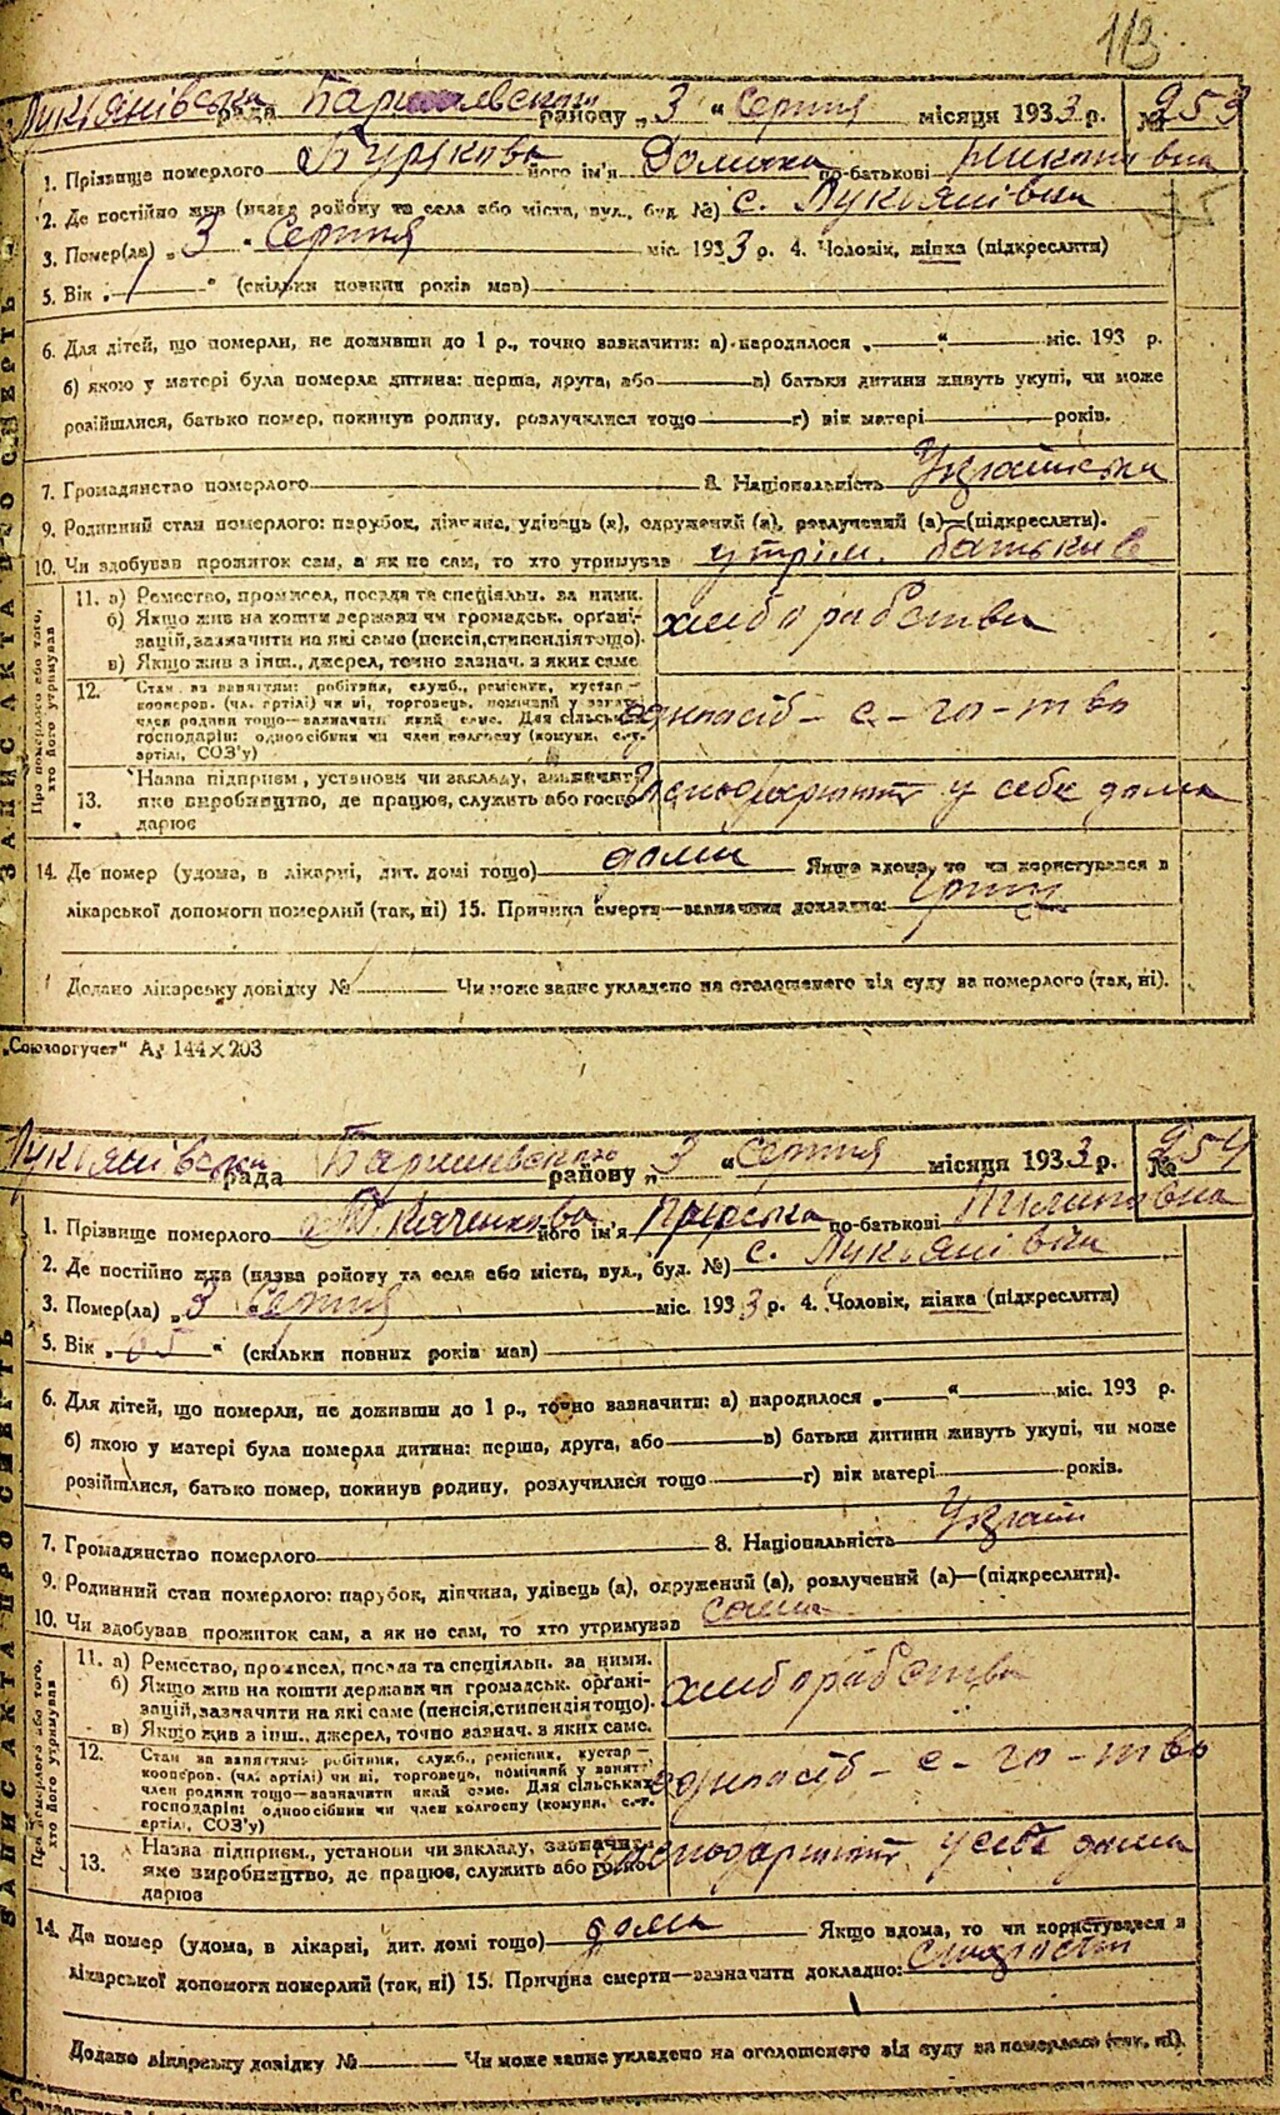 113
Лукіянівська рада Баришевського району „ 3 “ Серпня місяця 1933 р. № 253
1. Прізвище померлого Бурякова його ім'я Домаха по-батькові
2. Де постійно жив (назва району та села або міста, вул., буд. №) с. Лукіянівка
3. Помер(ла) „ 3 “ Серпня міс. 1933 р. 4. Чоловік, жінка (підкреслити)
5. Вік „ 1 “ (скільки повних років мав)
6. Для дітей, що померли, не доживши до 1 р., точно зазначити: а) народилося „ “ міс. 193 р.
б) якою у матері була померла дитина: перша, друга, або в) батьки дитини живуть укупі, чи може
розійшлися, батько помер, покинув родину, розлучилися тощо г) вік матері років.
7. Громадянство померлого 8. Національність Українська
9. Родинний стан померлого: парубок, дівчина, удівець (а), одружений (а), розлучений (а)—(підкреслити).
10. Чи здобував прожиток сам, а як не сам, то хто утримував утрим. батьків
ЗАПИС АКТА ПРО СМЕРТЬ
Про померлого або того, хто його утримував
11. а) Ремество, промисел, посада та спеціяльн. за ними.
б) Якщо жив на кошти держави чи громадськ. органі-
зацій, зазначити на які саме (пенсія, стипендія тощо).
в) Якщо жив з інш., джерел, точно зазнач. з яких саме
хліборобство
12. Стан за заняттям: робітник, служб., ремісник, кустар—
кооперов. (чл. артілі) чи ні, торговець, помічний у занятті
член родини тощо—зазначити який саме. Для сільських
господарів: одноосібник чи член колгоспу (комуни, с.-г.
артілі, СОЗ'у)
одноосіб - с - го - тво
13. Назва підприєм., установи чи закладу, зазначити
яке виробництво, де працює, служить або госпо-
дарює
у себе дома
14. Де помер (удома, в лікарні, дит. домі тощо) дома Якщо вдома, то чи користувався з
лікарської допомоги померлий (так, ні) 15. Причина смерти—зазначити докладно: грип
Додано лікарську довідку № Чи може запис укладено на оголошеного від суду за померлого (так, ні).
„Союзоргучет“ А; 144×203
Лукіянівська рада Баришевського району „ 3 “ Серпня місяця 1933 р. № 254
1. Прізвище померлого Ткаченкова його ім'я Пріська по-батькові Пилиповна
2. Де постійно жив (назва району та села або міста, вул., буд. №) с. Лукіянівка
3. Помер(ла) „ 3 “ Серпня міс. 1933 р. 4. Чоловік, жінка (підкреслити)
5. Вік „ 65 “ (скільки повних років мав)
6. Для дітей, що померли, не доживши до 1 р., точно зазначити: а) народилося „ “ міс. 193 р.
б) якою у матері була померла дитина: перша, друга, або в) батьки дитини живуть укупі, чи може
розійшлися, батько помер, покинув родину, розлучилися тощо г) вік матері років.
7. Громадянство померлого 8. Національність Україн
9. Родинний стан померлого: парубок, дівчина, удівець (а), одружений (а), розлучений (а)—(підкреслити).
10. Чи здобував прожиток сам, а як не сам, то хто утримував сама
ЗАПИС АКТА ПРО СМЕРТЬ
Про померлого або того, хто його утримував
11. а) Ремество, промисел, посада та спеціяльн. за ними.
б) Якщо жив на кошти держави чи громадськ. органі-
зацій, зазначити на які саме (пенсія, стипендія тощо).
в) Якщо жив з інш., джерел, точно зазнач. з яких саме.
хліборобство
12. Стан за заняттям: робітник, служб., ремісник, кустар—
кооперов. (чл. артілі) чи ні, торговець, помічний у занятті
член родини тощо—зазначити який саме. Для сільських
господарів: одноосібник чи член колгоспу (комуни, с.-г.
артілі, СОЗ'у)
одноосіб - с - го - тво
13. Назва підприєм., установи чи закладу, зазначити
яке виробництво, де працює, служить або госпо-
дарює
у себе дома
14. Де помер (удома, в лікарні, дит. домі тощо) дома Якщо вдома, то чи користувався з
лікарської допомоги померлий (так, ні) 15. Причина смерти—зазначити докладно: старості
Додано лікарську довідку № Чи може запис укладено на оголошеного від суду за померлого (так, ні).